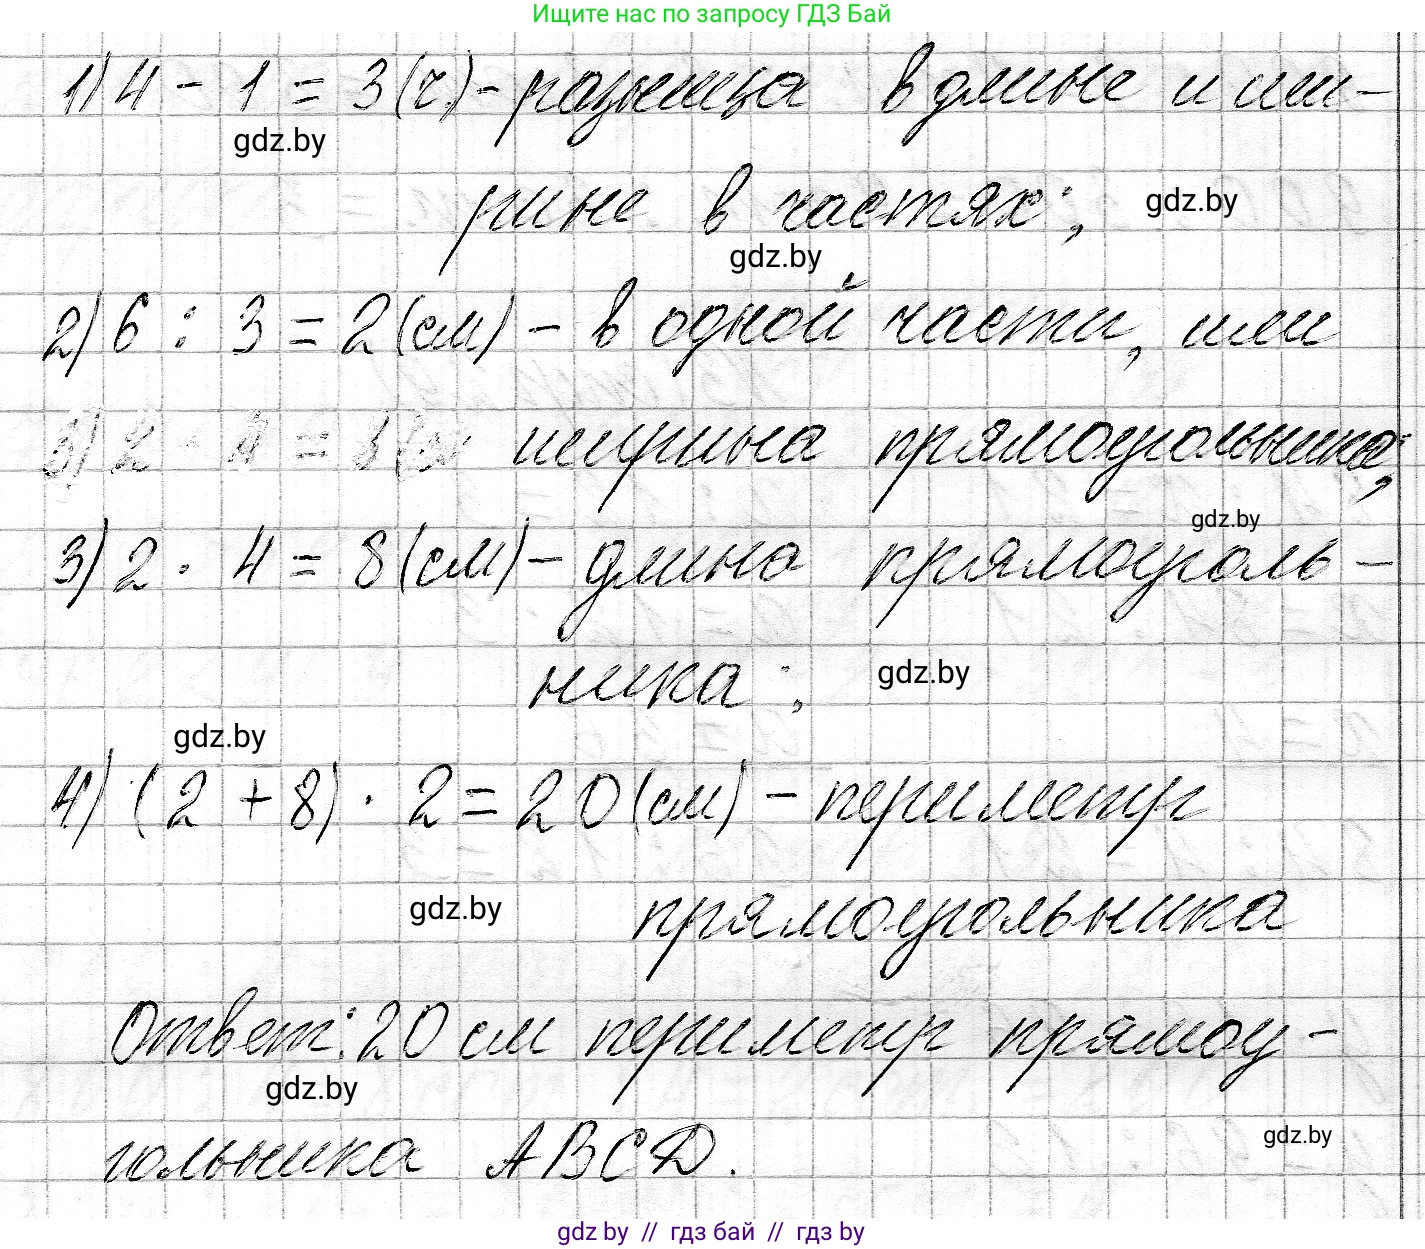 Ищите нас по запросу ГДЗ Бай
1) 4 - 1 = 3 (ч.) - разница в длине и ши-
gdz.by
рине в частях;
gdz.by
gdz.by
2) 6 : 3 = 2 (см) - в одной части, или
3) 2 · 4 = 8 (см ширина прямоугольника;
gdz.by
3) 2 · 4 = 8 (см) - длина прямоуголь-
ника;
gdz.by
gdz.by
4) (2 + 8) · 2 = 20 (см) - периметр
gdz.by
прямоугольника
Ответ: 20 см периметр прямоу-
gdz.by
гольника ABCD.
gdz.by
gdz by // гдз бай // гдз by